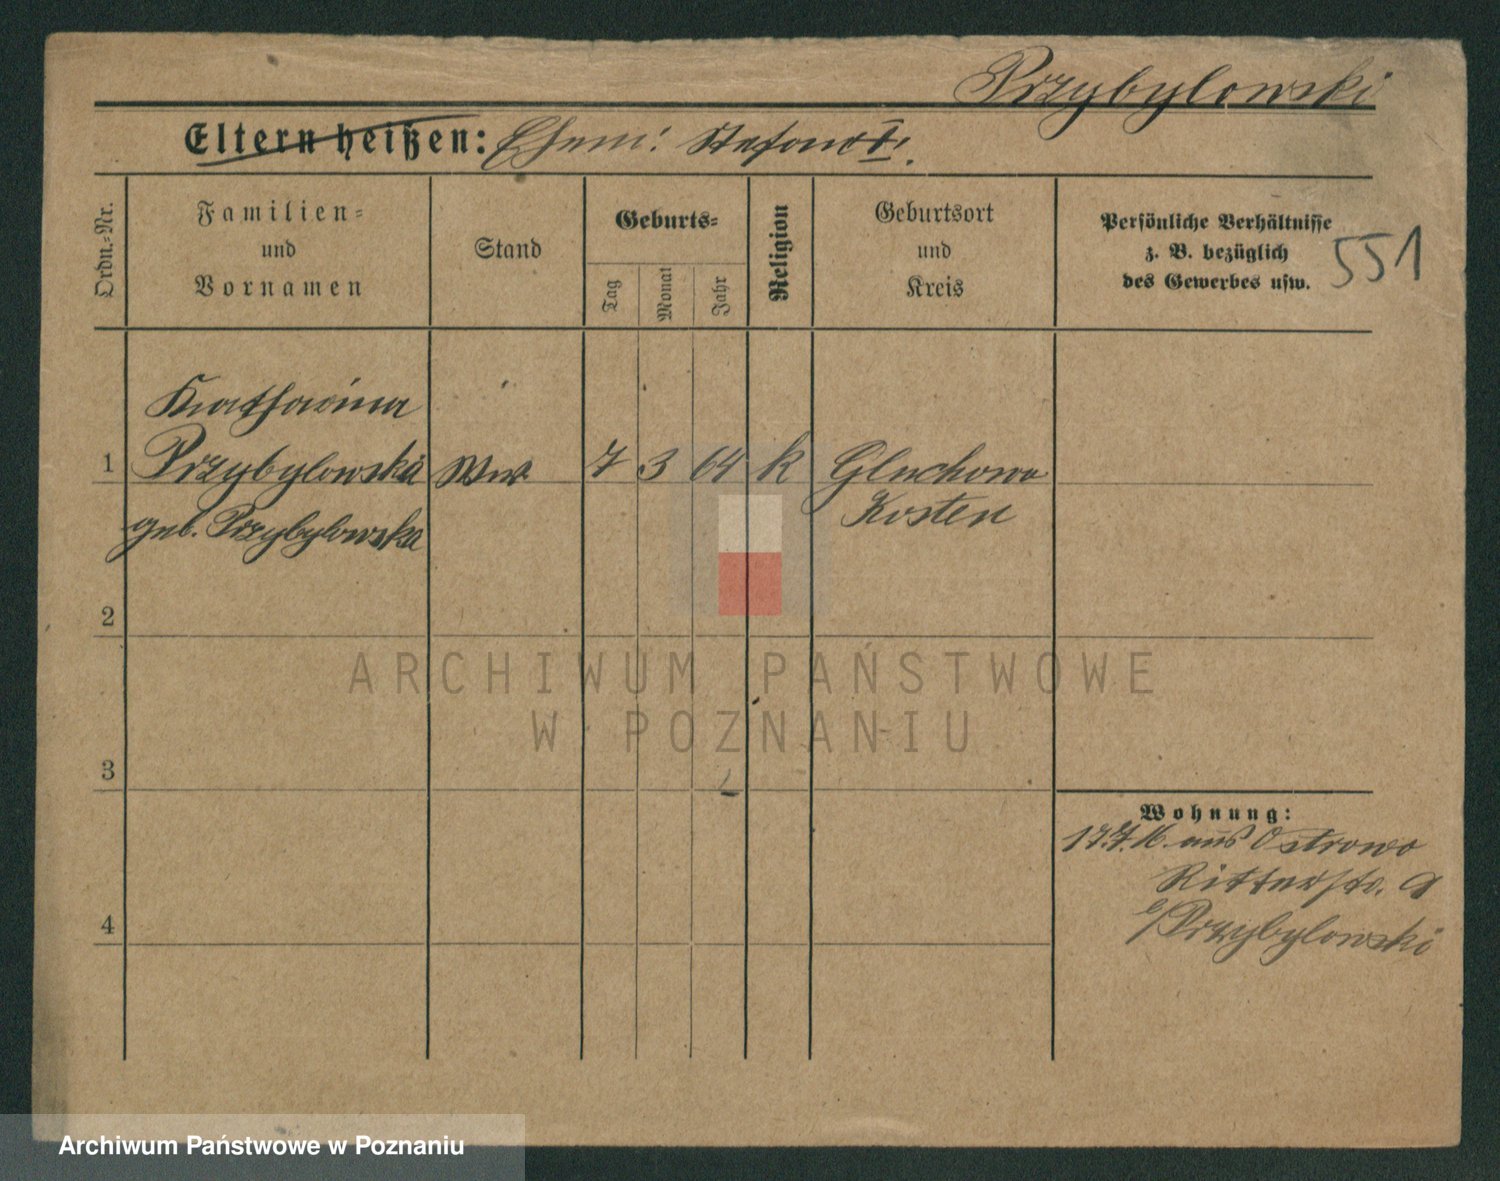 Przybylowski
Eltern heißen: Ehem: Stefan I.
Ordn.-Nr.
Familien-
und
Vornamen
Stand
Geburts-
Tag
Monat
Jahr
Religion
Geburtsort
und
Kreis
Persönliche Verhältnisse
z. B. bezüglich
des Gewerbes usw.
551
Katharina
1 Przybylowska Ww. 7 3 64 k Gluchowo
Kosten
geb. Przybylowska
2
ARCHIWUM PAŃSTWOWE
W POZNANIU
3
Wohnung:
17.7.16. aus Ostrowo
Ritterstr. 9
b/Przybylowski
4
Archiwum Państwowe w Poznaniu